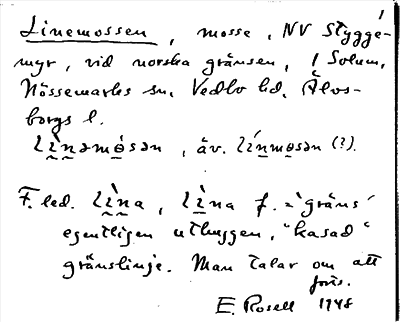 1
Linemossen, mosse, NV Stygge-
myr, vid norska gränsen, i Solum,
Nössemarks sn, Vedbo hd, Älvs-
borgs l.
lìnəmòsən, äv. línmosən (?).
F. led. lìna, lìna f. = 'gräns'
egentligen uthuggen, "kasad"
gränslinje. Man talar om att
forts.
E. Rosell 1948